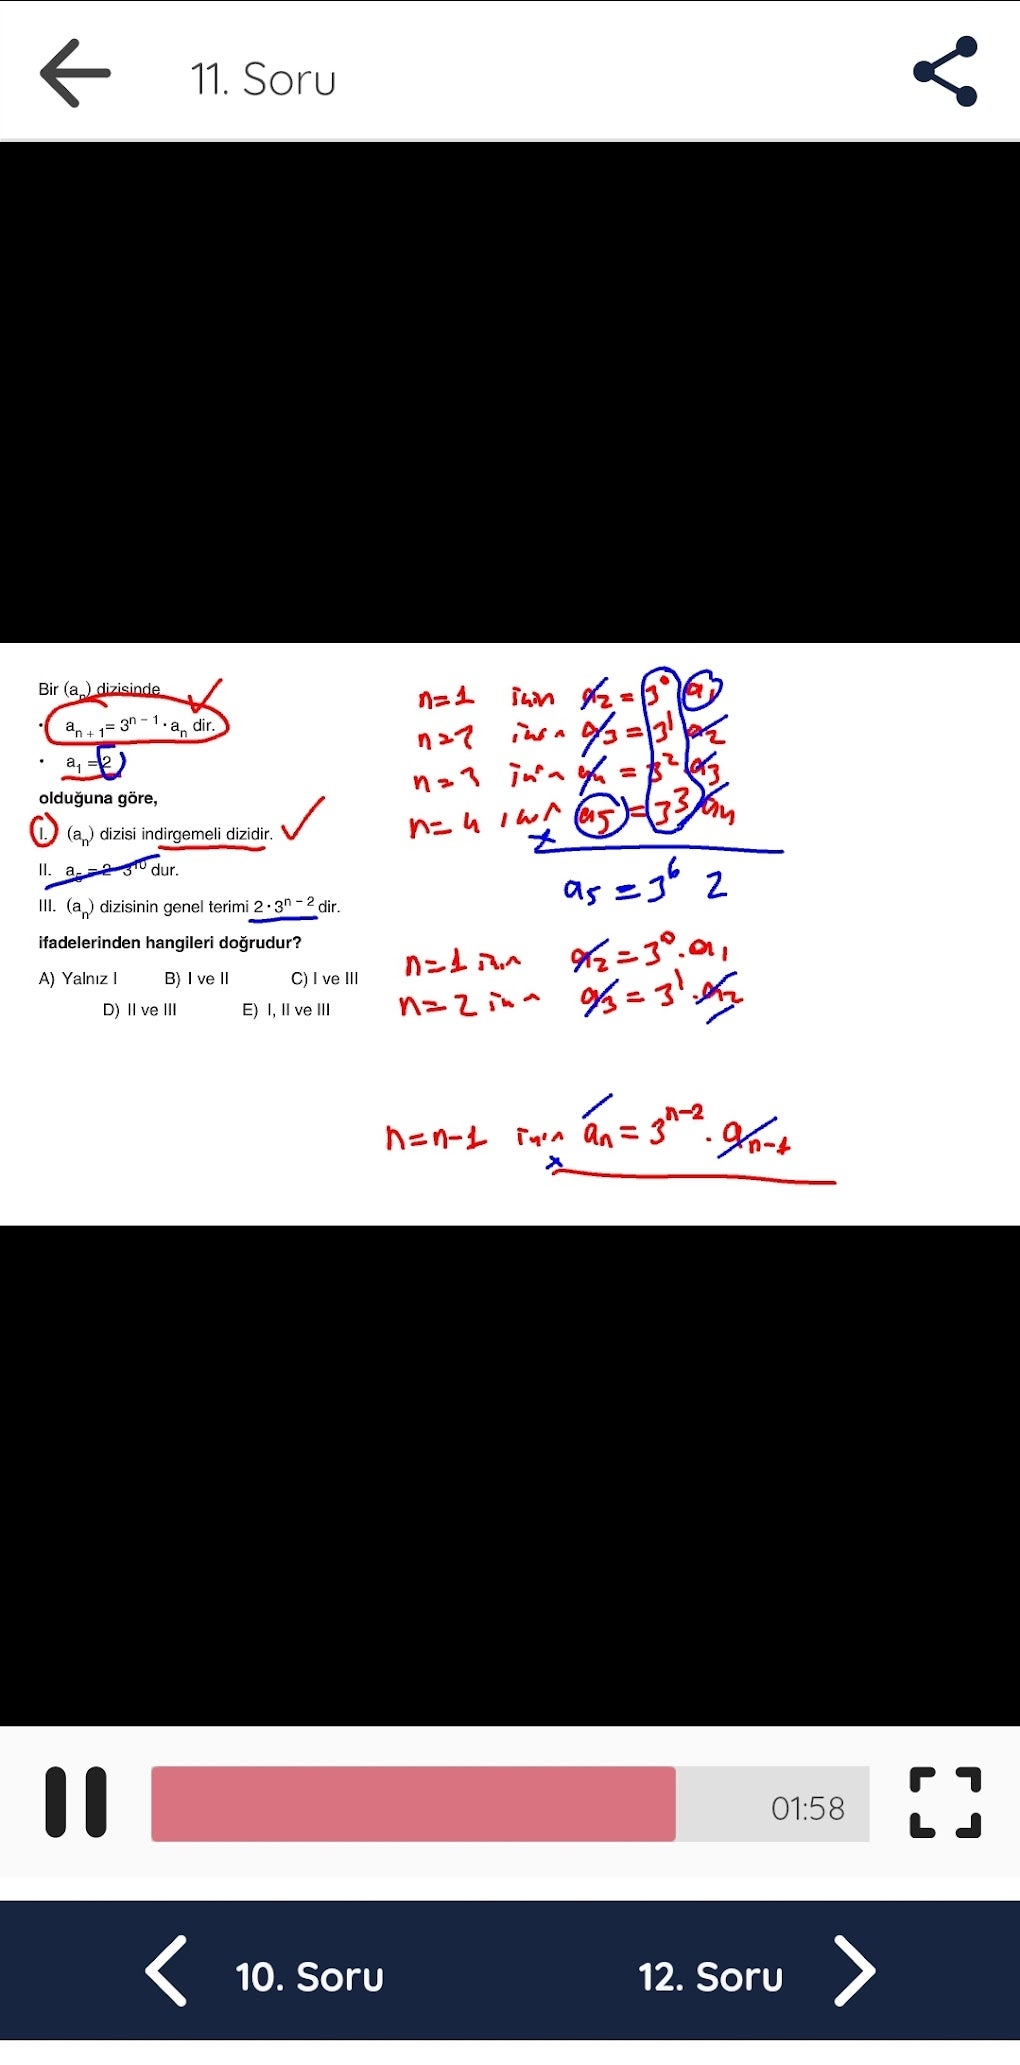 11. Soru
Bir (aₙ) dizisinde
• aₙ₊₁= 3ⁿ⁻¹·aₙ dir.
• a₁ =2
olduğuna göre,
I. (aₙ) dizisi indirgemeli dizidir.
II. a₅ = 2·3¹⁰ dur.
III. (aₙ) dizisinin genel terimi 2·3ⁿ⁻² dir.
ifadelerinden hangileri doğrudur?
A) Yalnız I B) I ve II C) I ve III
D) II ve III E) I, II ve III
n=1 için a₂ = 3⁰ a₁
n=2 için a₃ = 3¹ a₂
n=3 için a₄ = 3² a₃
n=4 için a₅ = 3³ a₄
x
a₅ = 3⁶ 2
n=1 için a₂ = 3⁰.a₁
n=2 için a₃ = 3¹.a₂
n=n-1 için aₙ = 3ⁿ⁻².aₙ₋₁
x
01:58
10. Soru 12. Soru